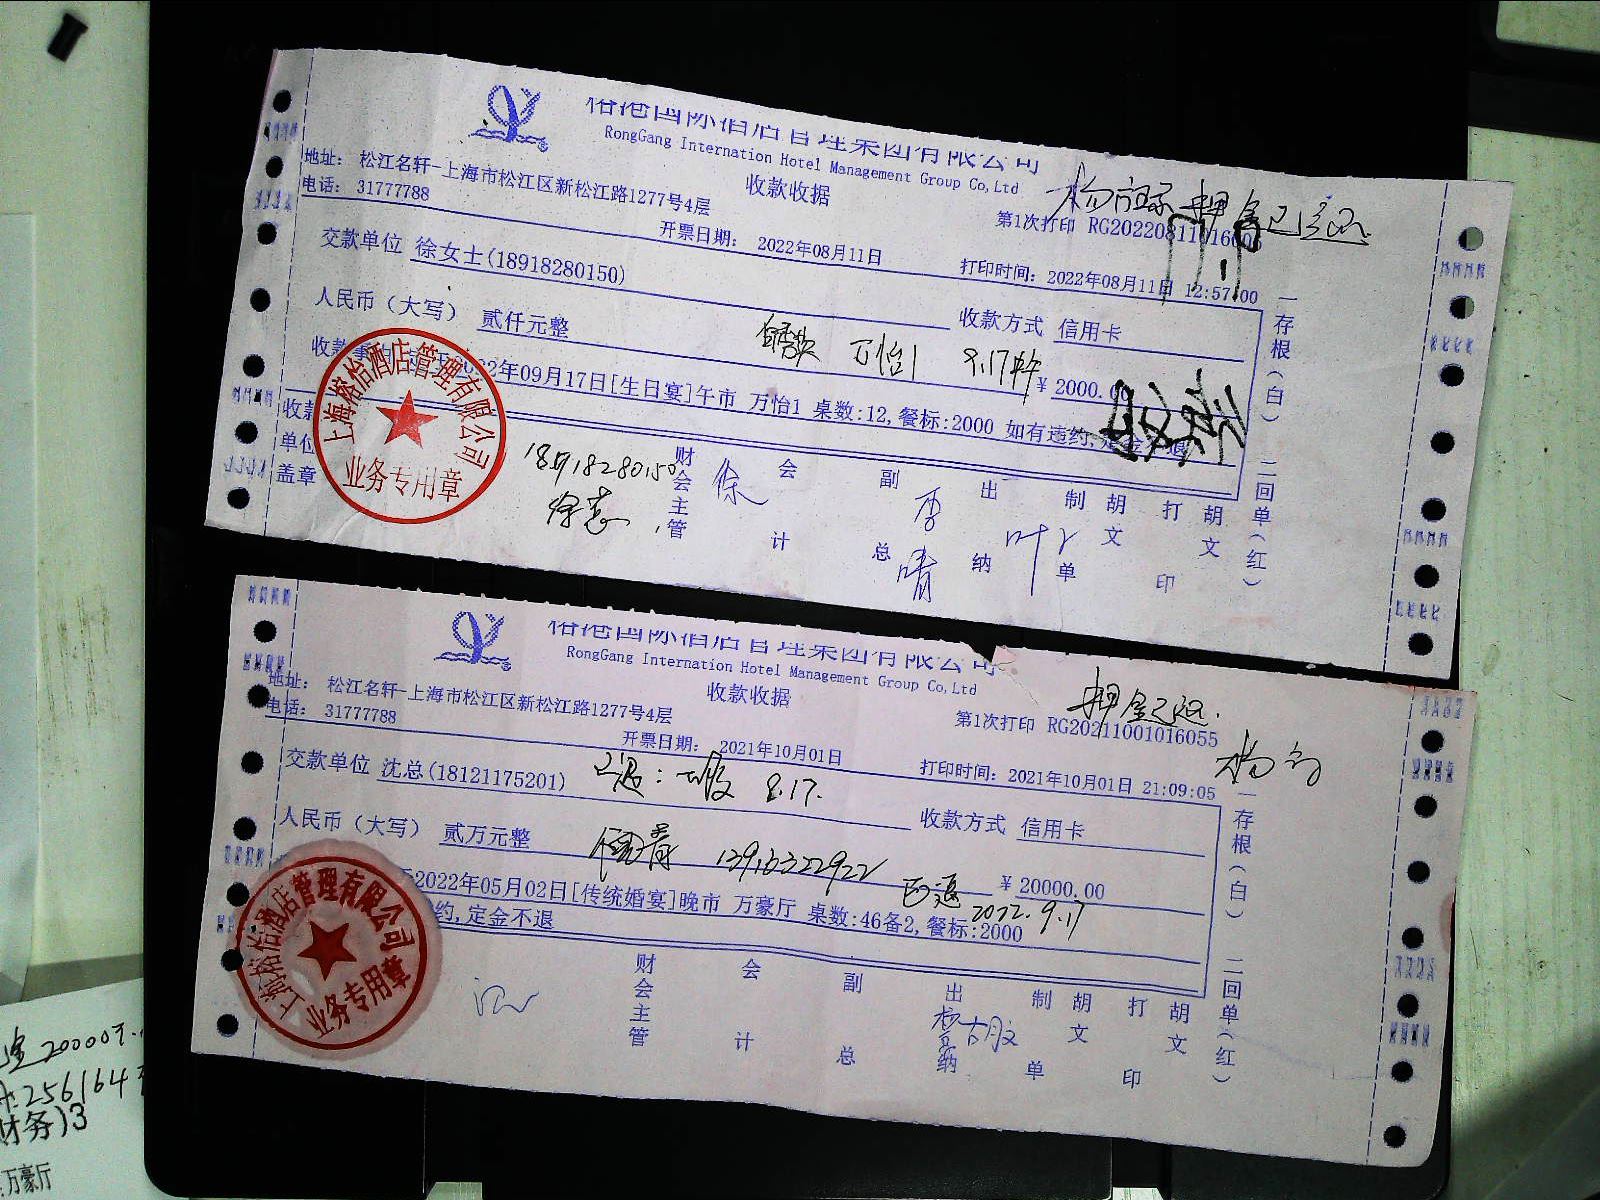 国际酒店管理集团有限公司
RongGang Internation Hotel Management Group Co,Ltd
地址： 松江名轩-上海市松江区新松江路1277号4层
电话： 31777788
收款收据
押金已退
第1次打印 RG20220811016
开票日期： 2022年08月11日
打印时间：2022年08月11日 12:57:00
交款单位 徐女士(18918280150)
人民币（大写） 贰仟元整
收款方式 信用卡
万怡1 9.17
¥ 2000.
2年09月17日[生日宴]午市 万怡1 桌数:12,餐标:2000 如有违约,定金
收款
单位
盖章
上海 酒店管理有限公司
业务专用章
18918280150
徐
财会主管 徐 会计 副总 李晴 出纳 叶 制单 胡文 打印 胡文
一存根（白） 二回单（红）
国际酒店管理集团有限公司
RongGang Internation Hotel Management Group Co,Ltd
地址： 松江名轩-上海市松江区新松江路1277号4层
电话： 31777788
收款收据
押金已退.
第1次打印 RG20211001016055
杨
开票日期： 2021年10月01日
打印时间：2021年10月01日 21:09:05
交款单位 沈总(18121175201)
9.17.
人民币（大写） 贰万元整
收款方式 信用卡
已退
¥ 20000.00
2022年05月02日[传统婚宴]晚市 万豪厅 桌数:46备2,餐标:2000
2022.9.17
约,定金不退
上海 酒店管理有限公司
业务专用章
财会主管 会计 副总 出纳 制单 胡文 打印 胡文
一存根（白） 二回单（红）
20000
256164
财务)3
万豪厅